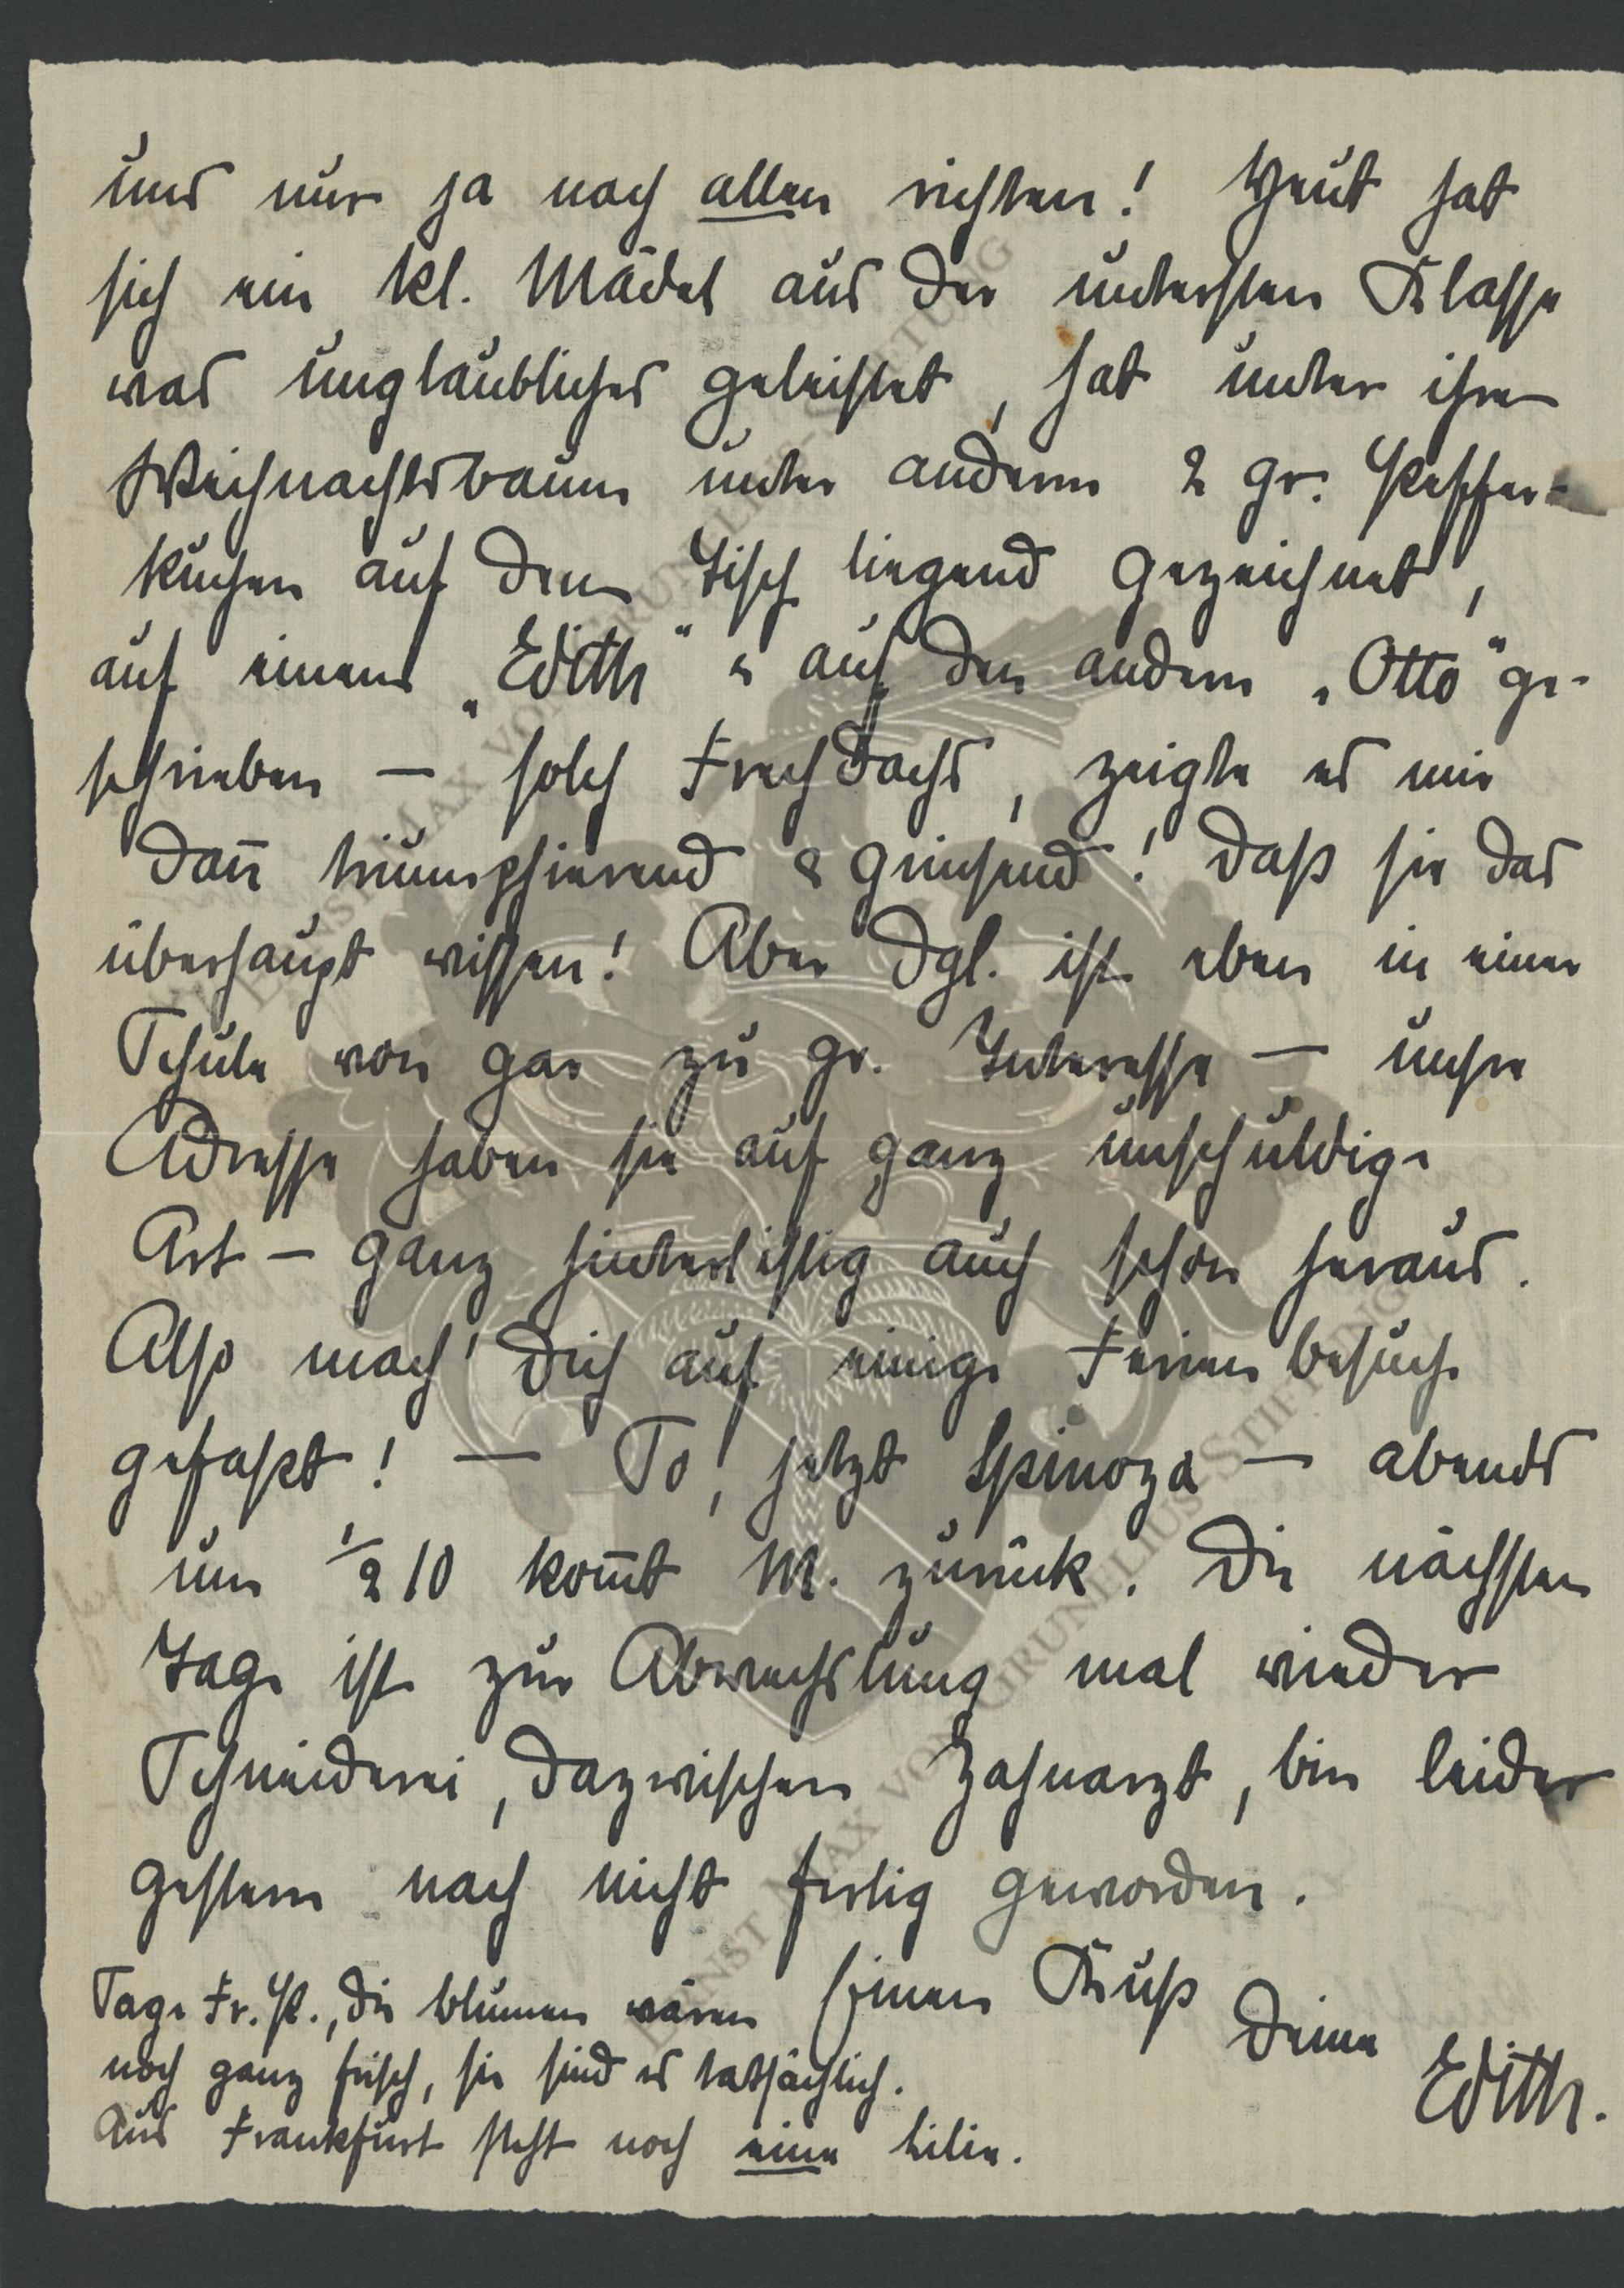 und nur ja nach allen richten! Heut hat
sich ein kl. Mädel aus der untersten Klasse
was unglaubliches geleistet, hat unter ihren
Weihnachtsbaum unter anderm 2 gr. Pfeffer-
kuchen auf dem Tisch liegend gezeichnet,
auf einem „Edith" & auf den andern „Otto" ge-
schrieben — solch Frechdachs, zeigte es mir
dann̅ triumphierend & grinsend! Daß sie das
überhaupt wissen! Aber dgl. ist eben in einer
Schule von gar zu gr. Interesse — unsre
Adresse haben sie auf ganz unschuldige
Art – ganz hinterlistig auch schon heraus.
Also mach' Dich auf einige Ferienbesuche
gefaßt! — So, jetzt Spinoza — abends
um ½ 10 kom̅t M. zurück. Die nächsten
Tage ist zur Abwechslung mal wieder
Schneiderei, dazwischen Zahnarzt, bin leider
gestern noch nicht fertig geworden.
Einen Kuß
Deine
Edith.
Sage Fr. P., die Blumen wären
noch ganz frisch, sie sind es tatsächlich.
Aus Frankfurt steht noch eine Lilie.
ERNST MAX VON GRUNELIUS-STIFTUNG
ERNST MAX VON GRUNELIUS-STIFTUNG